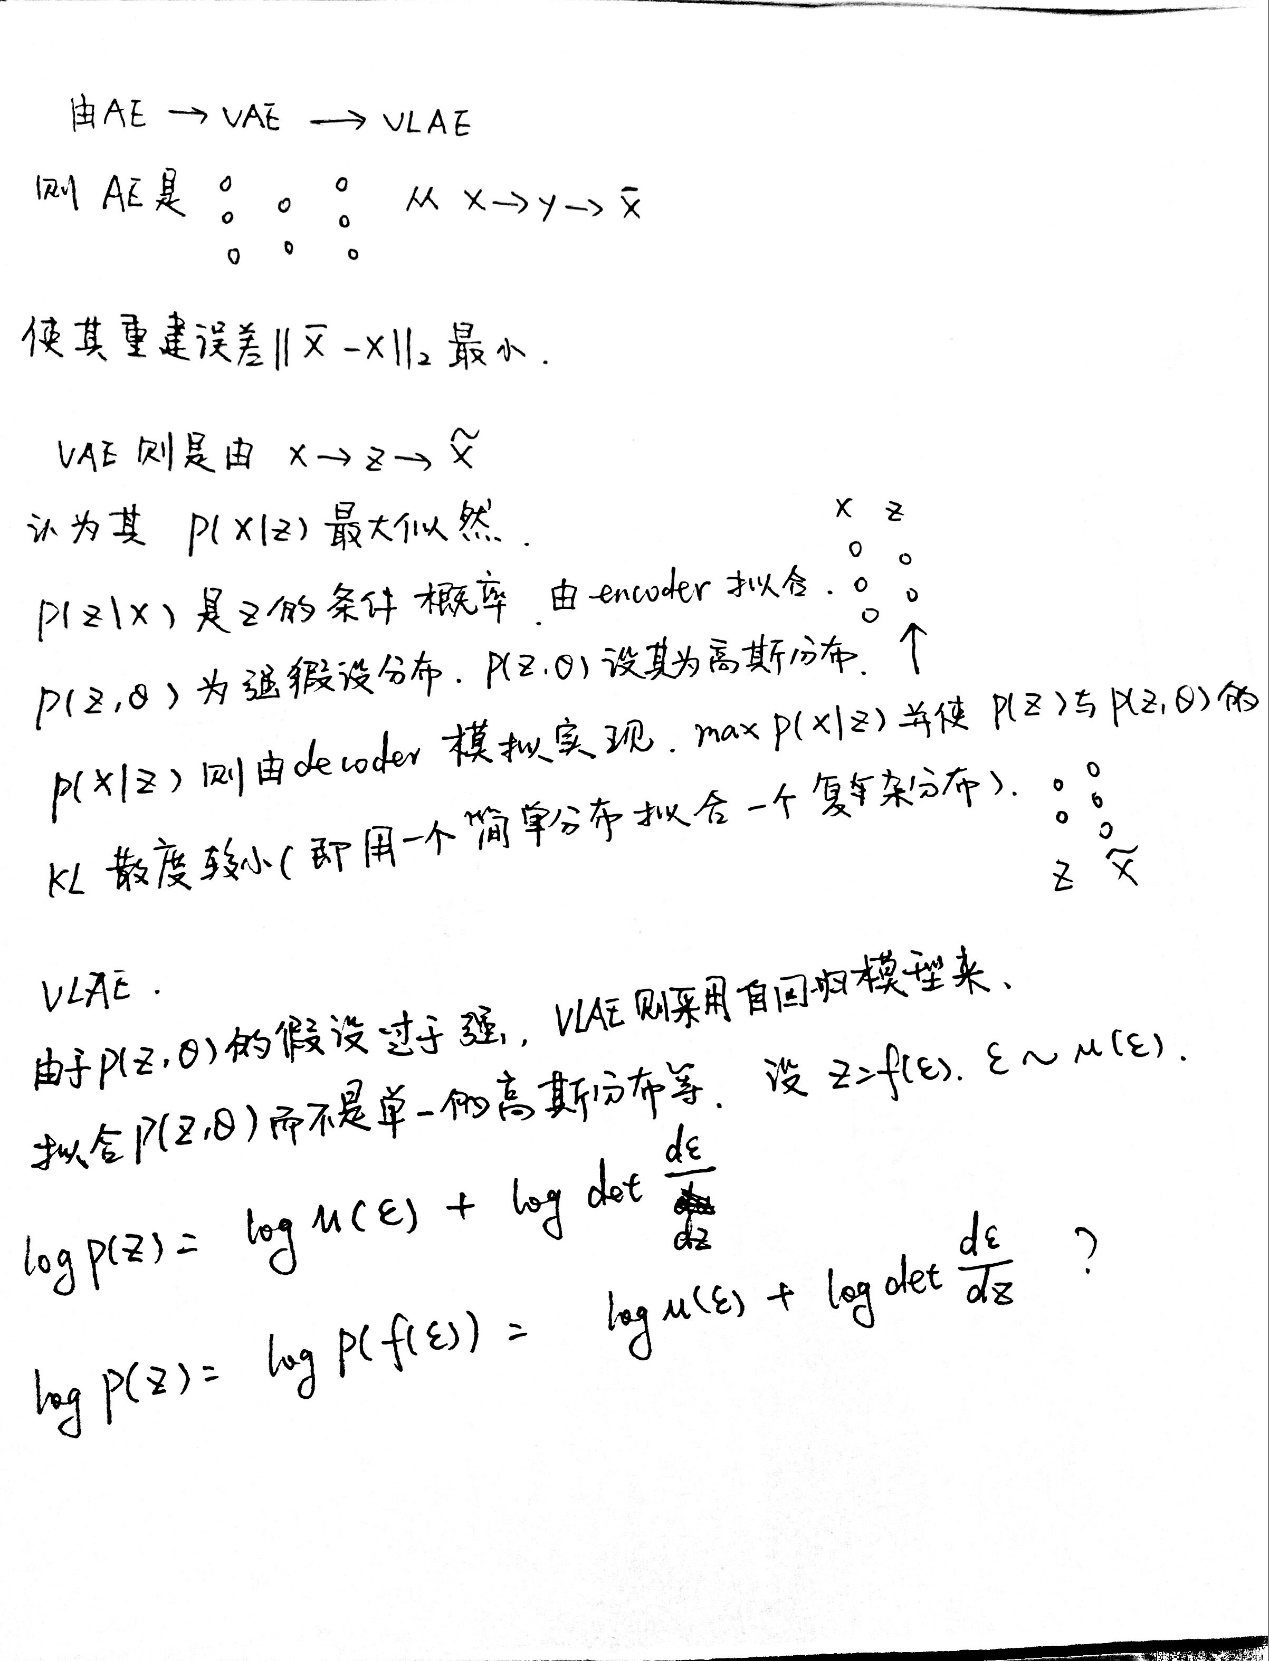 由AE → VAE → VLAE
则 AE是 从 x→y→x̄
使其重建误差||x̄-x||₂最小.
VAE则是由 x→z→x̃
认为其 p(x|z)最大似然.
x z
p(z|x)是z的条件概率.由encoder拟合.
p(z,θ)为强假设分布.p(z,θ)设其为高斯分布.↑
p(x|z)则由decoder模拟实现.max p(x|z)并使 p(z)与p(z,θ)的
KL散度较小(即用一个简单分布拟合一个复杂分布).
z x̃
VLAE.
由于p(z,θ)的假设过于强,VLAE则采用自回归模型来、
拟合p(z,θ)而不是单一的高斯分布等. 设 z=f(ε). ε~u(ε).
log p(z) = log u(ε) + log det dε/dz
log p(z) = log p(f(ε)) = log u(ε) + log det dε/dz ?